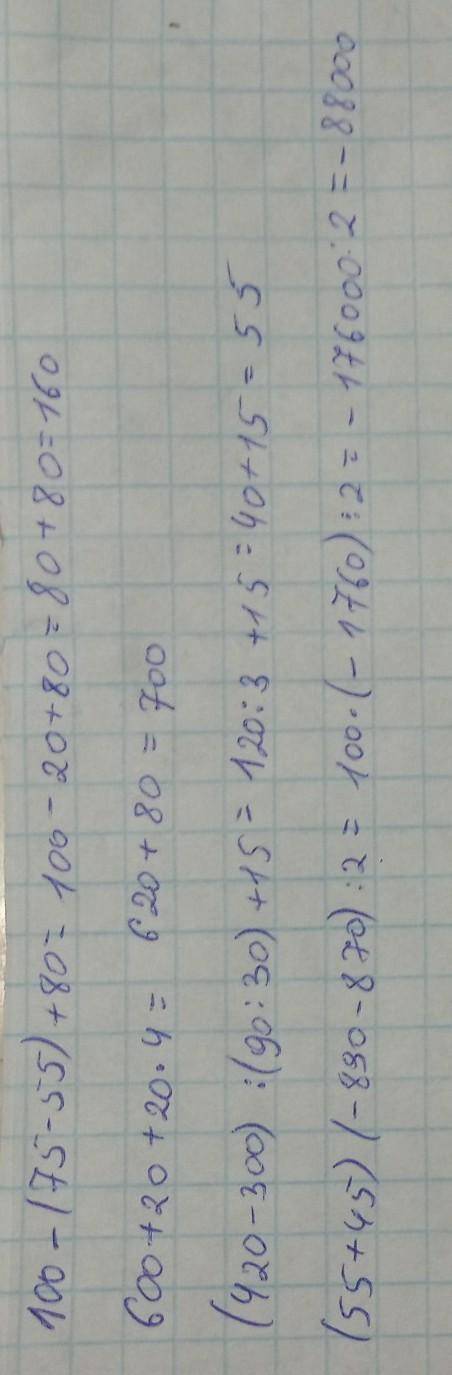 100-(75-55)+80=100-20+80=80+80=160
600+20+20·4= 620+80=700
(420-300):(90:30)+15=120:3+15=40+15=55
(55+45)(-890-870):2=100·(-1760):2=-176000:2=-88000